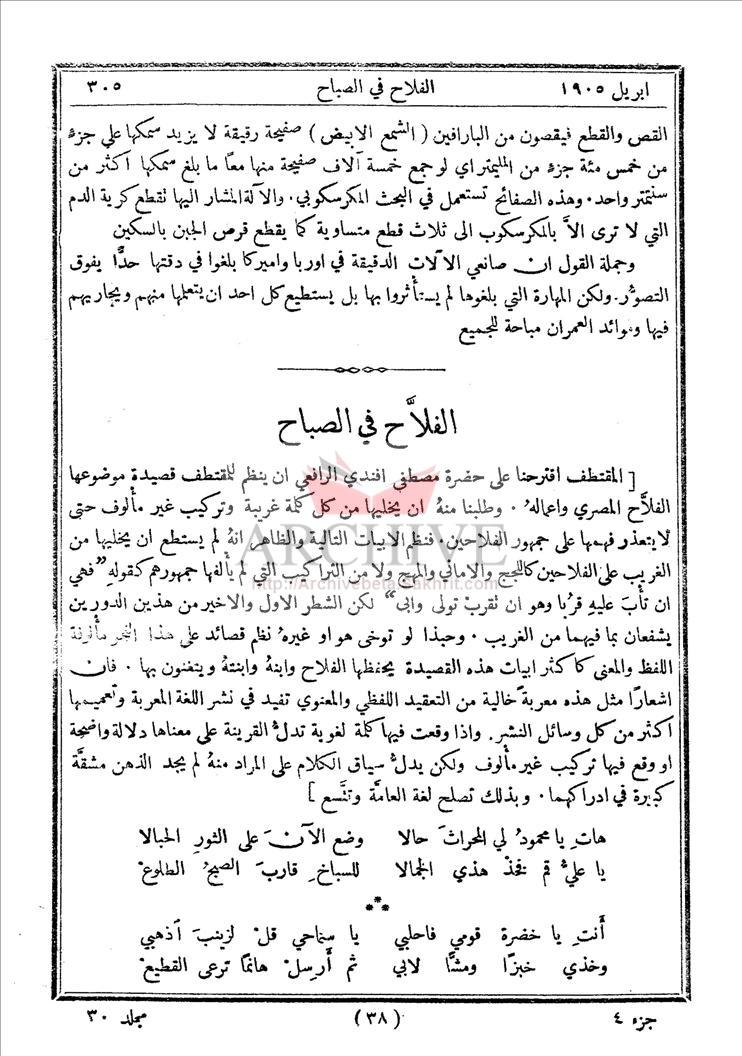 ابريل ١٩٠٥ الفلاح في الصباح ٣٠٥
القص والقطع فيقصون من البارافين ( الشمع الابيض ) صفيحة رقيقة لا يزيد سمكها على جزءٍ
من خمس مئة جزءٍ من المليمتر اي لو جمع خمسة آلاف صفيحة منها معًا ما بلغ سمكها اكثر من
سنتمتر واحد . وهذه الصفائح تستعمل في البحث المكرسكوبي . والآلة المشار اليها تقطع كرية الدم
التي لا ترى الاَّ بالمكرسكوب الى ثلاث قطع متساوية كما يقطع قرص الجبن بالسكين
وجملة القول ان صانعي الآلات الدقيقة في اوربا واميركا بلغوا في دقتها حدًّا يفوق
التصوُّر . ولكن المهارة التي بلغوها لم يستأثروا بها بل يستطيع كل احد ان يتعلمها منهم ويجاريهم
فيها وموائد العمران مباحة للجميع
الفلاَّح في الصباح
[ المقتطف اقترحنا على حضرة مصطفى افندي الرافعي ان ينظم للمقتطف قصيدة موضوعها
الفلاَّح المصري واعماله . وطلبنا منهُ ان يخليها من كل كلمة غريبة وتركيب غير مألوف حتى
لا يتعذر فهمها على جمهور الفلاحين . فنظم الابيات التالية والظاهر انهُ لم يستطع ان يخليها من
الغريب على الفلاحين كاللجيج والاماني والمهج ولا من التراكيب التي لم يألفها جمهورهم كقولهِ "فهي
ان تأبَ عليهِ قربًا وهو ان تقرب تولى وابى" لكن الشطر الاول والاخير من هذين الدورين
يشفعان بما فيهما من الغريب . وحبذا لو توخى هو او غيرهُ نظم قصائد على هذا النحو مألوفة
اللفظ والمعنى كاكثر ابيات هذه القصيدة يحفظها الفلاح وابنهُ وابنتهُ ويتغنون بها . فان
اشعارًا مثل هذه معربة خالية من التعقيد اللفظي والمعنوي تفيد في نشر اللغة المعربة وتعميمها
اكثر من كل وسائل النشر . واذا وقعت فيها كلمة لغوية تدلُّ القرينة على معناها دلالة واضحة
او وقع فيها تركيب غير مألوف ولكن يدلُّ سياق الكلام على المراد منهُ لم يجد الذهن مشقَّة
كبيرة في ادراكهما . وبذلك تصلح لغة العامَّة وتتَّسع ]
هاتِ يا محمودُ لي المحراثَ حالا وضع الآنَ على الثورِ الحبالا
يا عليُّ قم فخذ هذي الجمالا للسباخِ قاربَ الصبحُ الطلوعْ
***
أنتِ يا خضرة قومي فاحلبي يا سماحي قلْ لزينبَ آذهبي
وخذي خبزًا ومشًّا لابي ثم أرسلْ هانمًا ترعى القطيعْ
جزء ٤ ( ٣٨ ) مجلد ٣٠
ARCHIVE
http://Archivebeta.Sakhrit.com